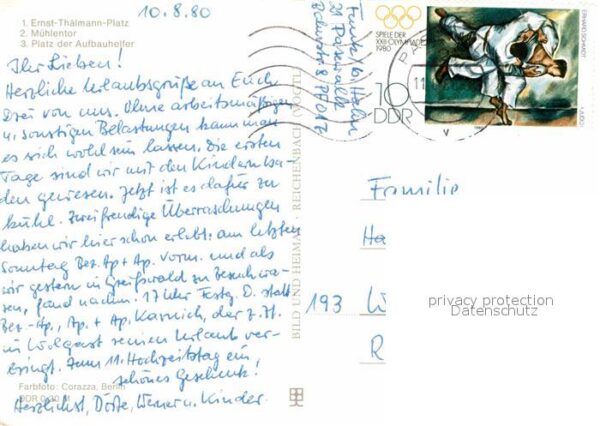 10.8.80
1. Ernst-Thälmann-Platz
2. Mühlentor
3. Platz der Aufbauhelfer
Ihr Lieben!
Herzliche Urlaubsgrüße an Euch
Drei von uns. Ohne arbeitsmäßigen
u. sonstigen Belastungen kann man
es sich wohl sein lassen. Die ersten
Tage sind wir mit den Kindern ba-
den gewesen. Jetzt ist es dafür zu
kühl. Zwei freudige Überraschungen
haben wir hier schon erlebt: am letzten
Sonntag Bez. Ap + Ap. vorm. und als
wir gestern in Greifswald zu Besuch wa-
ren, fand nachm. 17 Uhr Festg. D. statt
Bez.-Ap., Ap. + Ap. Karnick, der z.Zt.
in Wolgast seinen Urlaub ver-
bringt. Zum 11. Hochzeitstag ein
schönes Geschenk!
Herzlichst, Dörte, Werner u. Kinder.
Farbfoto: Corazza, Berlin
DDR 0,20 M
BILD UND HEIMAT REICHENBACH (VOGTL)
21 Pasewalk
SPIELE DER
XXII. OLYMPIADE
1980
10
DDR
ERHARD SCHMIDT
Familie
Ha
193 W
R
privacy protection
Datenschutz